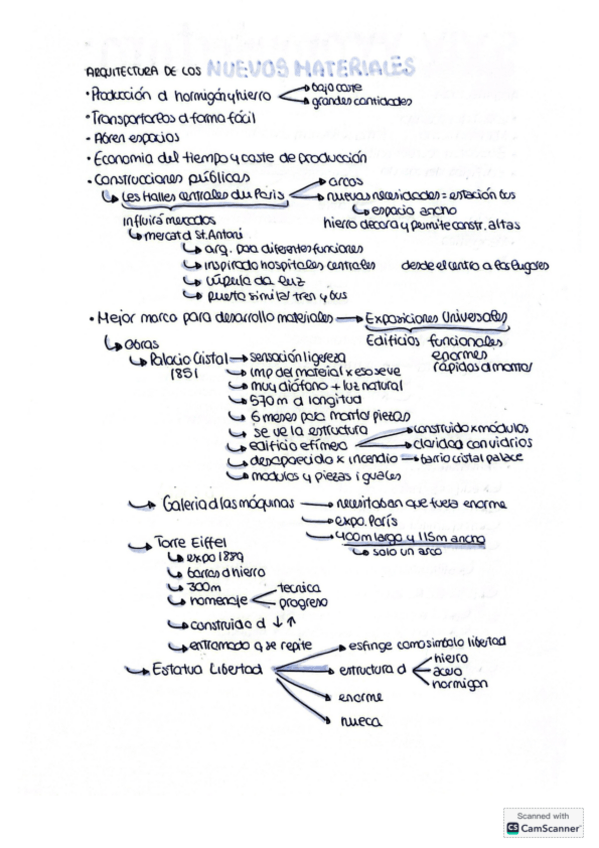 ARQUITECTURA DE LOS NUEVOS MATERIALES
· Producción d hormigón y hierro → bajo coste
→ grandes cantidades
· Transportarlos d forma fácil
· Abren espacios
· Economia del tiempo y coste de producción
· Construcciones públicas
↳ Les Halles centrales du Paris → arcos
→ nuevas necesidades = estación bus
↳ espacio ancho
influirá mercados
hierro decora y permite constr. altas
↳ mercat d St. Antoni
↳ arq. para diferentes funciones
↳ inspirado hospitales centrales desde el centro a los lugares
↳ cúpula da luz
↳ puerta similar tren y bus
· Mejor marco para desarrollo materiales → Exposiciones Universales
↳ obras
Edificios funcionales
enormes
rápidos d montar
↳ Palacio Cristal → sensación ligereza
1851
↳ imp del material x eso se ve
↳ muy diáfano + luz natural
↳ 570 m d longitud
↳ 6 meses para montar piezas
↳ se ve la estructura
↳ edificio efímero → construido x módulos
→ claridad con vidrios
↳ desaparecido x incendio → barrio cristal palace
↳ modulos y piezas iguales
↳ Galeria d las máquinas → necesitaban que fuera enorme
→ expo. París
→ 400m largo y 115m ancho
↳ solo un arco
↳ Torre Eiffel
↳ expo 1889
↳ barras d hierro
↳ 300m
↳ homenaje < tecnica
progreso
↳ construida d ↓ ↑
↳ entramado q se repite
↳ Estatua Libertad → esfinge como simbolo libertad
→ estructura d < hierro
acero
hormigon
→ enorme
→ hueca
Scanned with
CS CamScanner